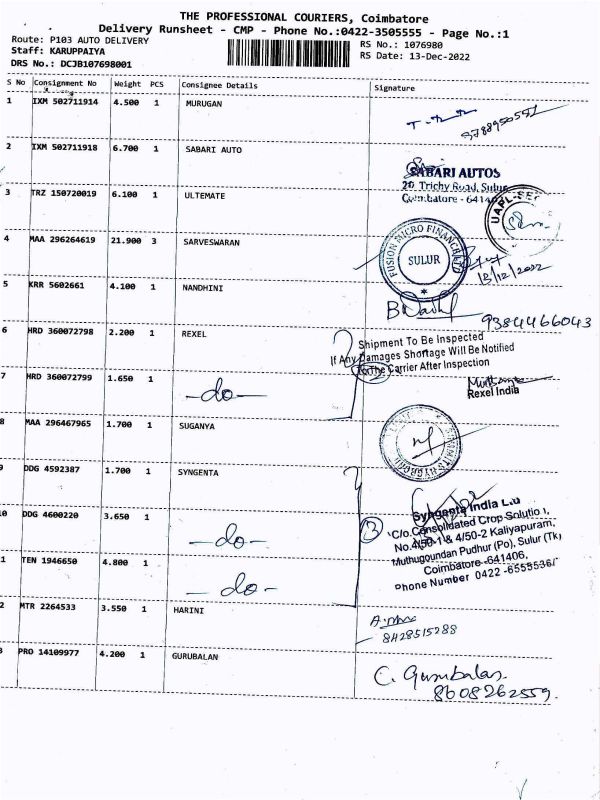 THE PROFESSIONAL COURIERS, Coimbatore
Delivery Runsheet - CMP - Phone No.:0422-3505555 - Page No.:1
Route: P103 AUTO DELIVERY
RS No.: 1076980
Staff: KARUPPAIYA
RS Date: 13-Dec-2022
DRS No.: DCJB107698001
S No Consignment No Weight PCS Consignee Details Signature
1 IXM 502711914 4.500 1 MURUGAN
9788950551
2 IXM 502711918 6.700 1 SABARI AUTO
SABARI AUTOS
20, Trichy Road, Sulur
Coimbatore - 641402
3 TRZ 150720019 6.100 1 ULTEMATE
4 MAA 296264619 21.900 3 SARVESWARAN
FUSION MICRO FINANCE LTD
SULUR
13/12/2022
5 KRR 5602661 4.100 1 NANDHINI
9384466043
6 HRD 360072798 2.200 1 REXEL
Shipment To Be Inspected
If Any Damages Shortage Will Be Notified
To The Carrier After Inspection
7 HRD 360072799 1.650 1 -do-
Rexel India
8 MAA 296467965 1.700 1 SUGANYA
9 DDG 4592387 1.700 1 SYNGENTA
Syngenta India Ltd
C/o.Consolidated Crop Solution,
No.4/50-1 & 4/50-2 Kaliyapuram,
Muthugoundan Pudhur (Po), Sulur (Tk)
Coimbatore -641406,
Phone Number 0422 -6555536/
10 DDG 4600220 3.650 1 -do-
3
1 TEN 1946650 4.800 1 -do-
2 MTR 2264533 3.550 1 HARINI
8428515288
3 PRO 14109977 4.200 1 GURUBALAN
C. Gurubalan.
8608262559.